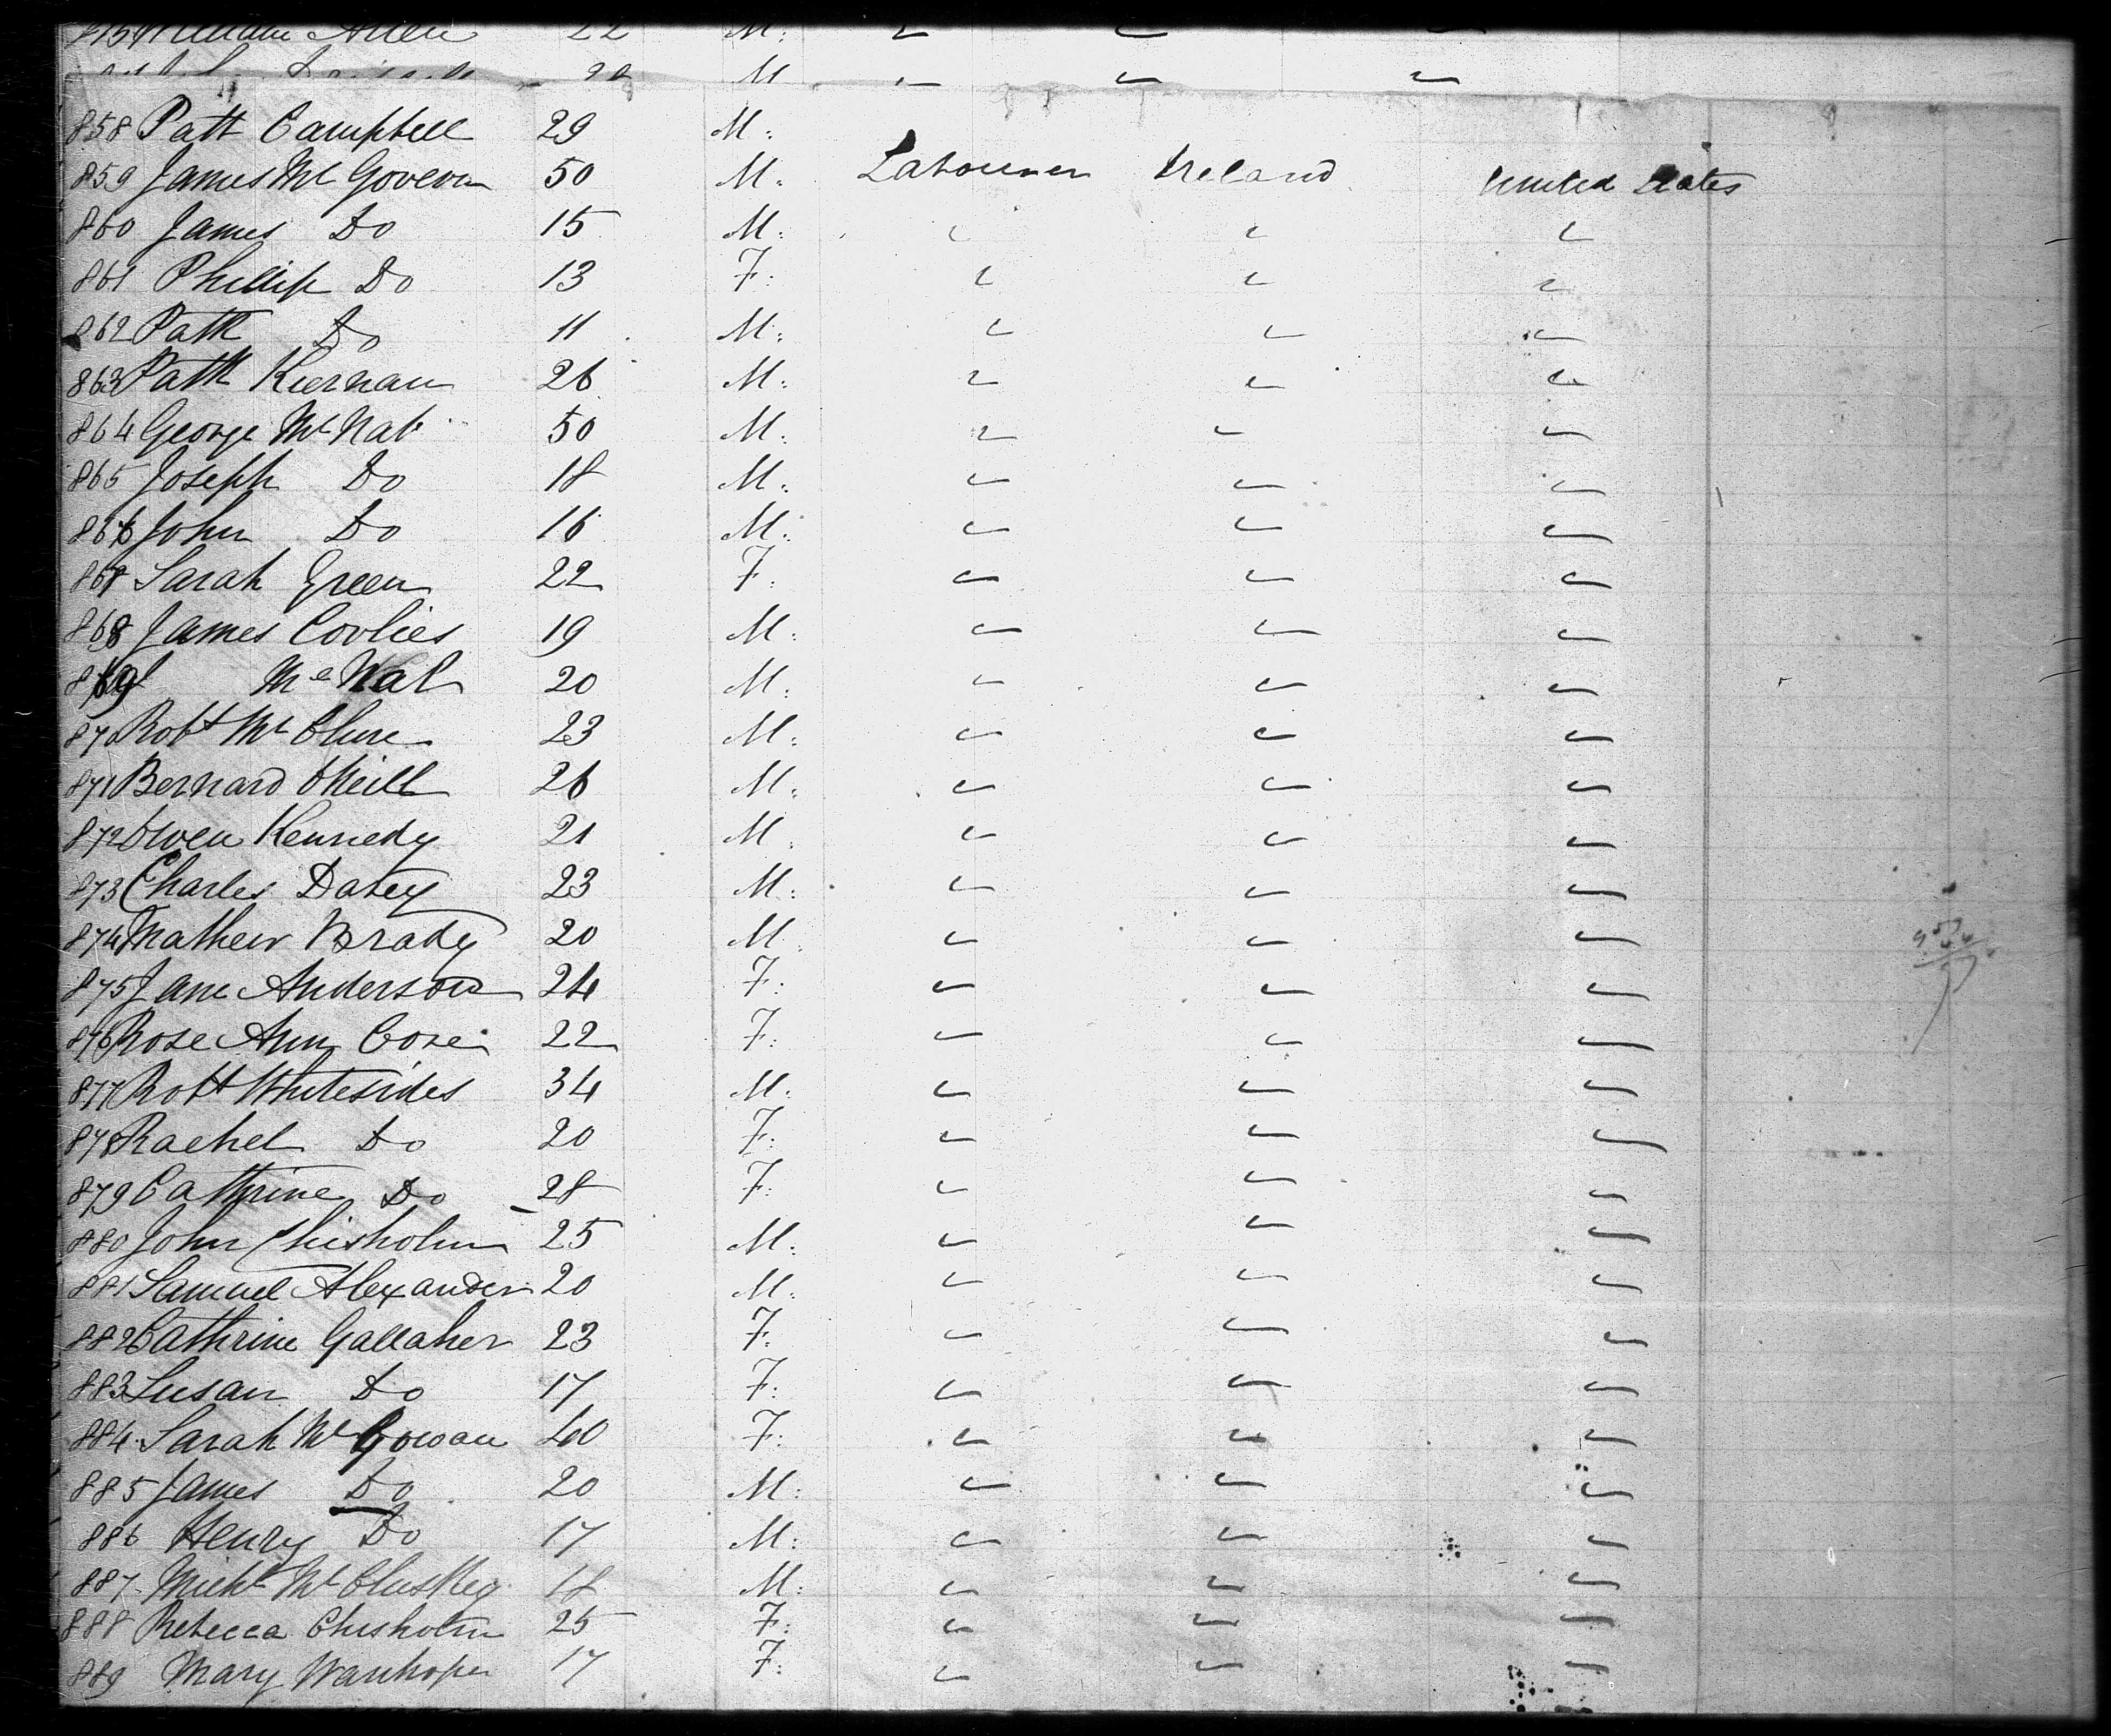 William Allen 22 M:
M
858 Patt Campbell 29 M:
859 James Mc Govern 50 M: Labourer Ireland United States
860 James Do 15 M:
861 Phillip Do 13 F:
862 Patk Do 11 M:
863 Patk Kiernan 26 M:
864 George Mc Nab 50 M:
865 Joseph Do 18 M:
866 John Do 16 M:
867 Sarah Green 22 F:
868 James Corlies 19 M:
869 Mc Nab 20 M:
870 Robt Mc Clure 23 M:
871 Bernard ONeill 26 M:
872 Owen Kennedy 21 M:
873 Charles Davey 23 M:
874 Mathew Brady 20 M
875 Jane Anderson 24 F:
876 Rose Ann 22 F:
877 Robt Whitesides 34 M:
878 Rachel Do 20 F:
879 Cathrine Do 28 F:
880 John Chisholm 25 M:
881 Samuel Alexander 20 M:
882 Cathrine Gallaher 23 F:
883 Susan Do 17 F:
884 Sarah Mc Gowan 40 F:
885 James Do 20 M:
886 Henry Do 17 M:
887 Michl Mc Cluskey 18 M:
888 Rebecca Chisholm 25 F:
889 Mary Wanhope 17 F: